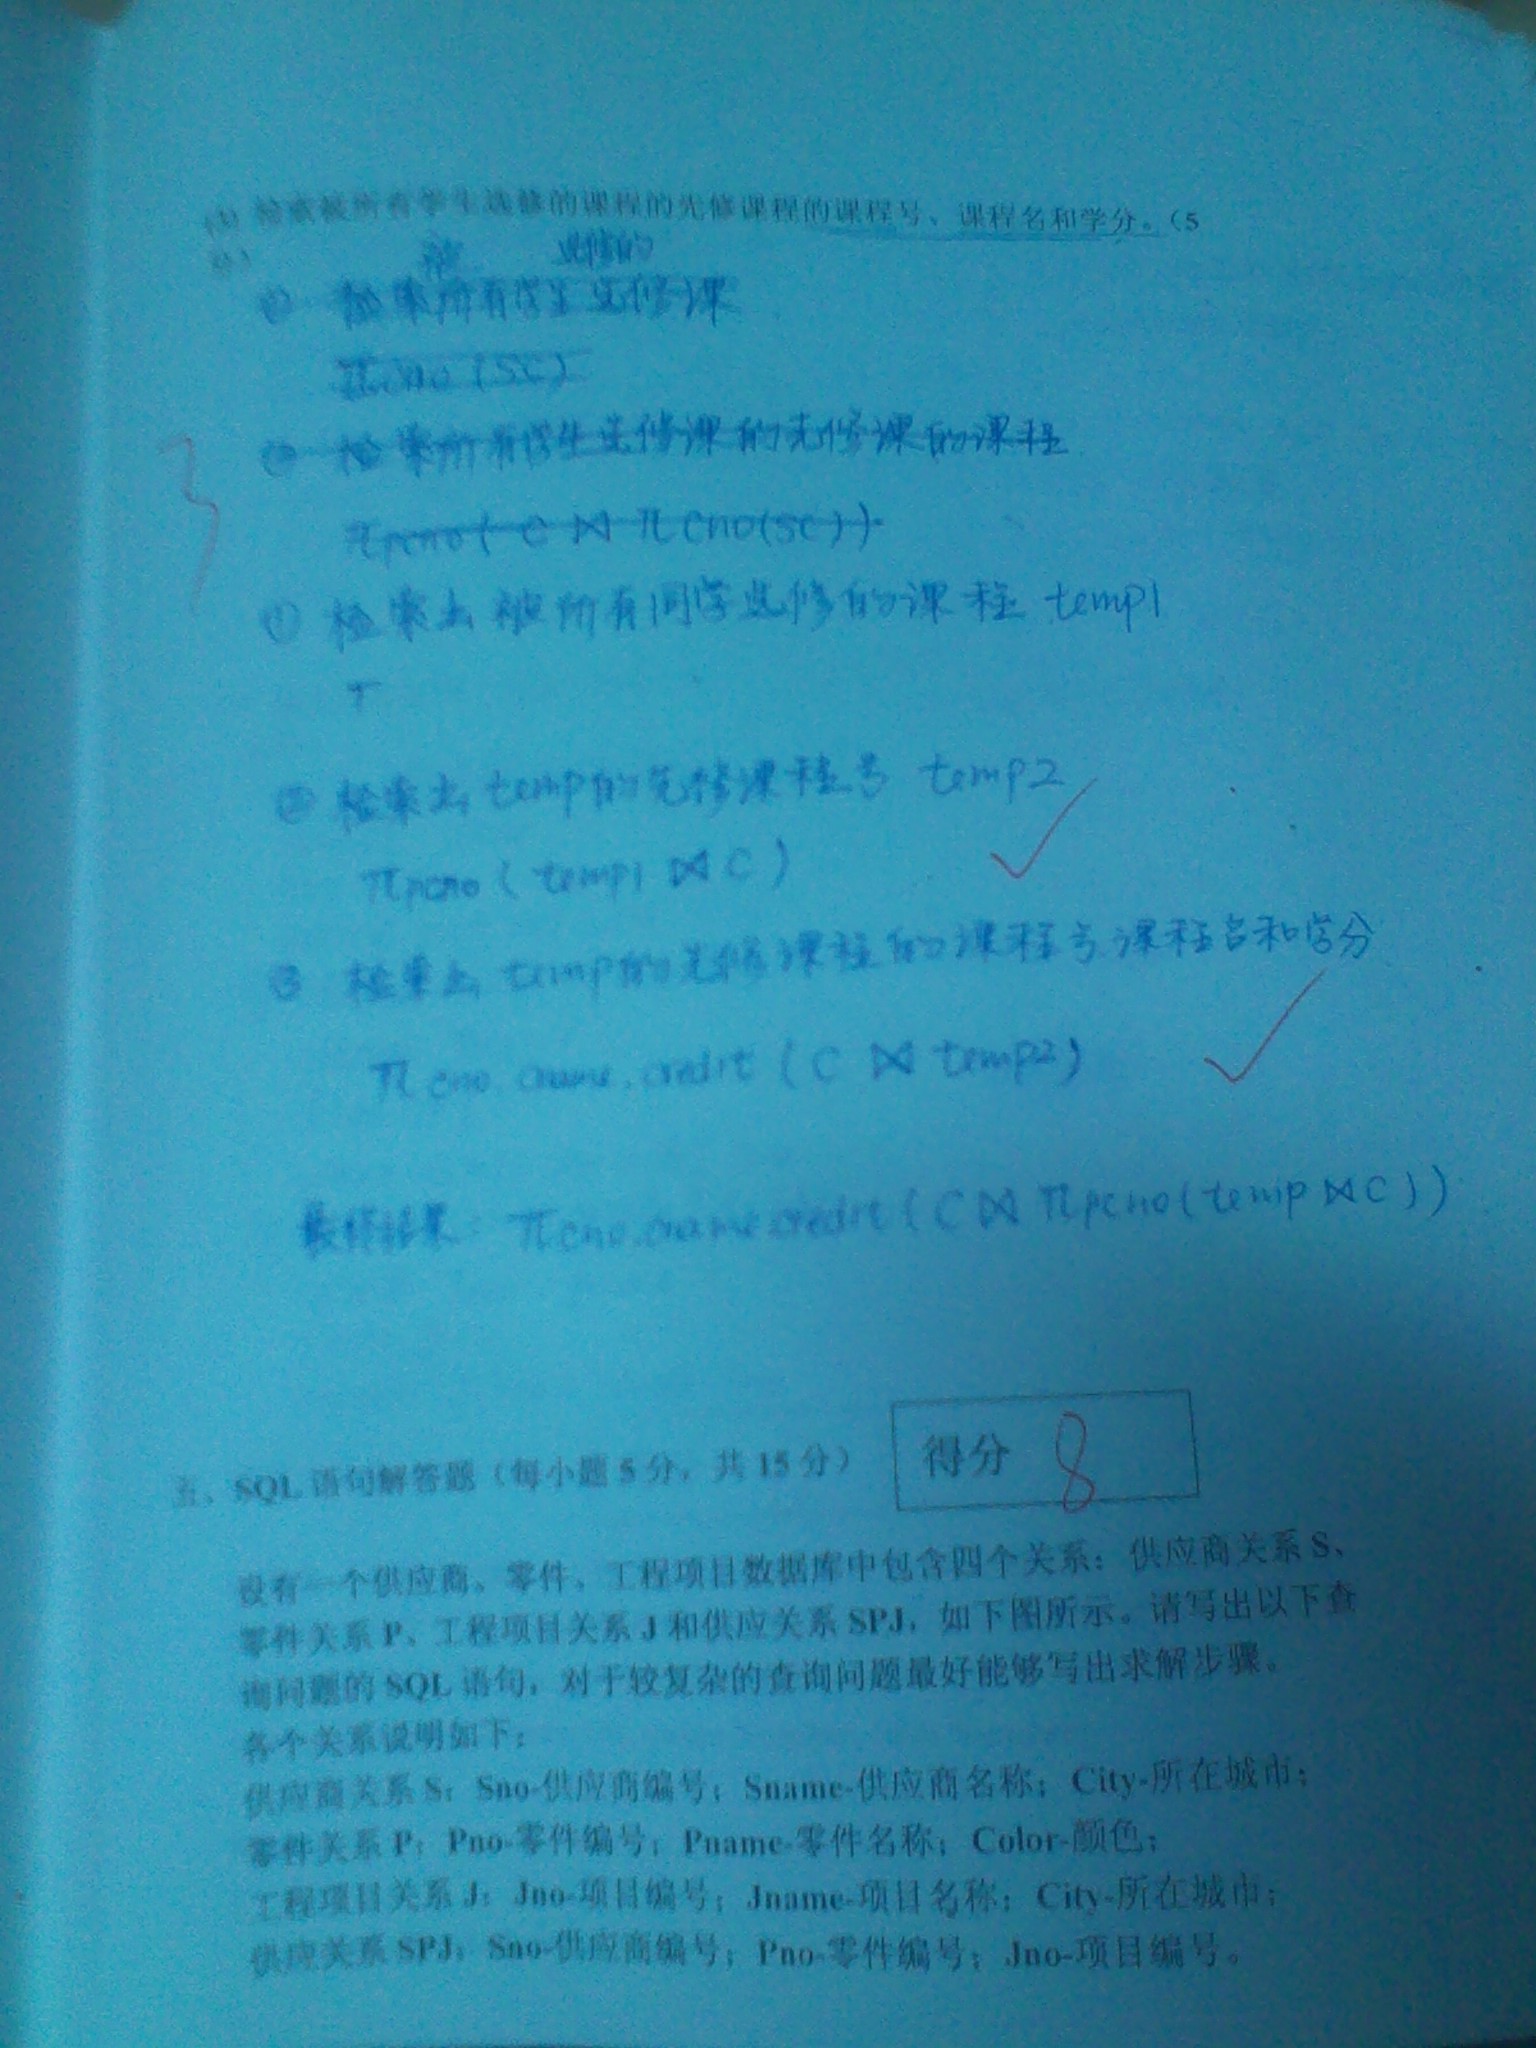 (3) 检索被所有学生选修的课程的先修课程的课程号、课程名和学分。(5
分)
被 选修的
① 检索所有学生选修课
πcno(SC)
② 检索所有学生选修课的先修课的课程
πpcno(C⋈πcno(SC))
3
① 检索出被所有同学选修的课程 temp1
② 检索出temp的先修课程号 temp2
πpcno(temp1⋈C)
③ 检索出temp的先修课程的课程号课程名和学分
πcno.cname.credit(C⋈temp2)
最终结果:πcno.cname.credit(C⋈πpcno(temp⋈C))
五、SQL 语句解答题(每小题 5 分,共 15 分)
得分 8
设有一个供应商、零件、工程项目数据库中包含四个关系:供应商关系 S、
零件关系 P、工程项目关系 J 和供应关系 SPJ,如下图所示。请写出以下查
询问题的 SQL 语句,对于较复杂的查询问题最好能够写出求解步骤。
各个关系说明如下:
供应商关系 S:Sno-供应商编号;Sname-供应商名称;City-所在城市;
零件关系 P:Pno-零件编号;Pname-零件名称;Color-颜色;
工程项目关系 J:Jno-项目编号;Jname-项目名称;City-所在城市;
供应关系 SPJ:Sno-供应商编号;Pno-零件编号;Jno-项目编号。